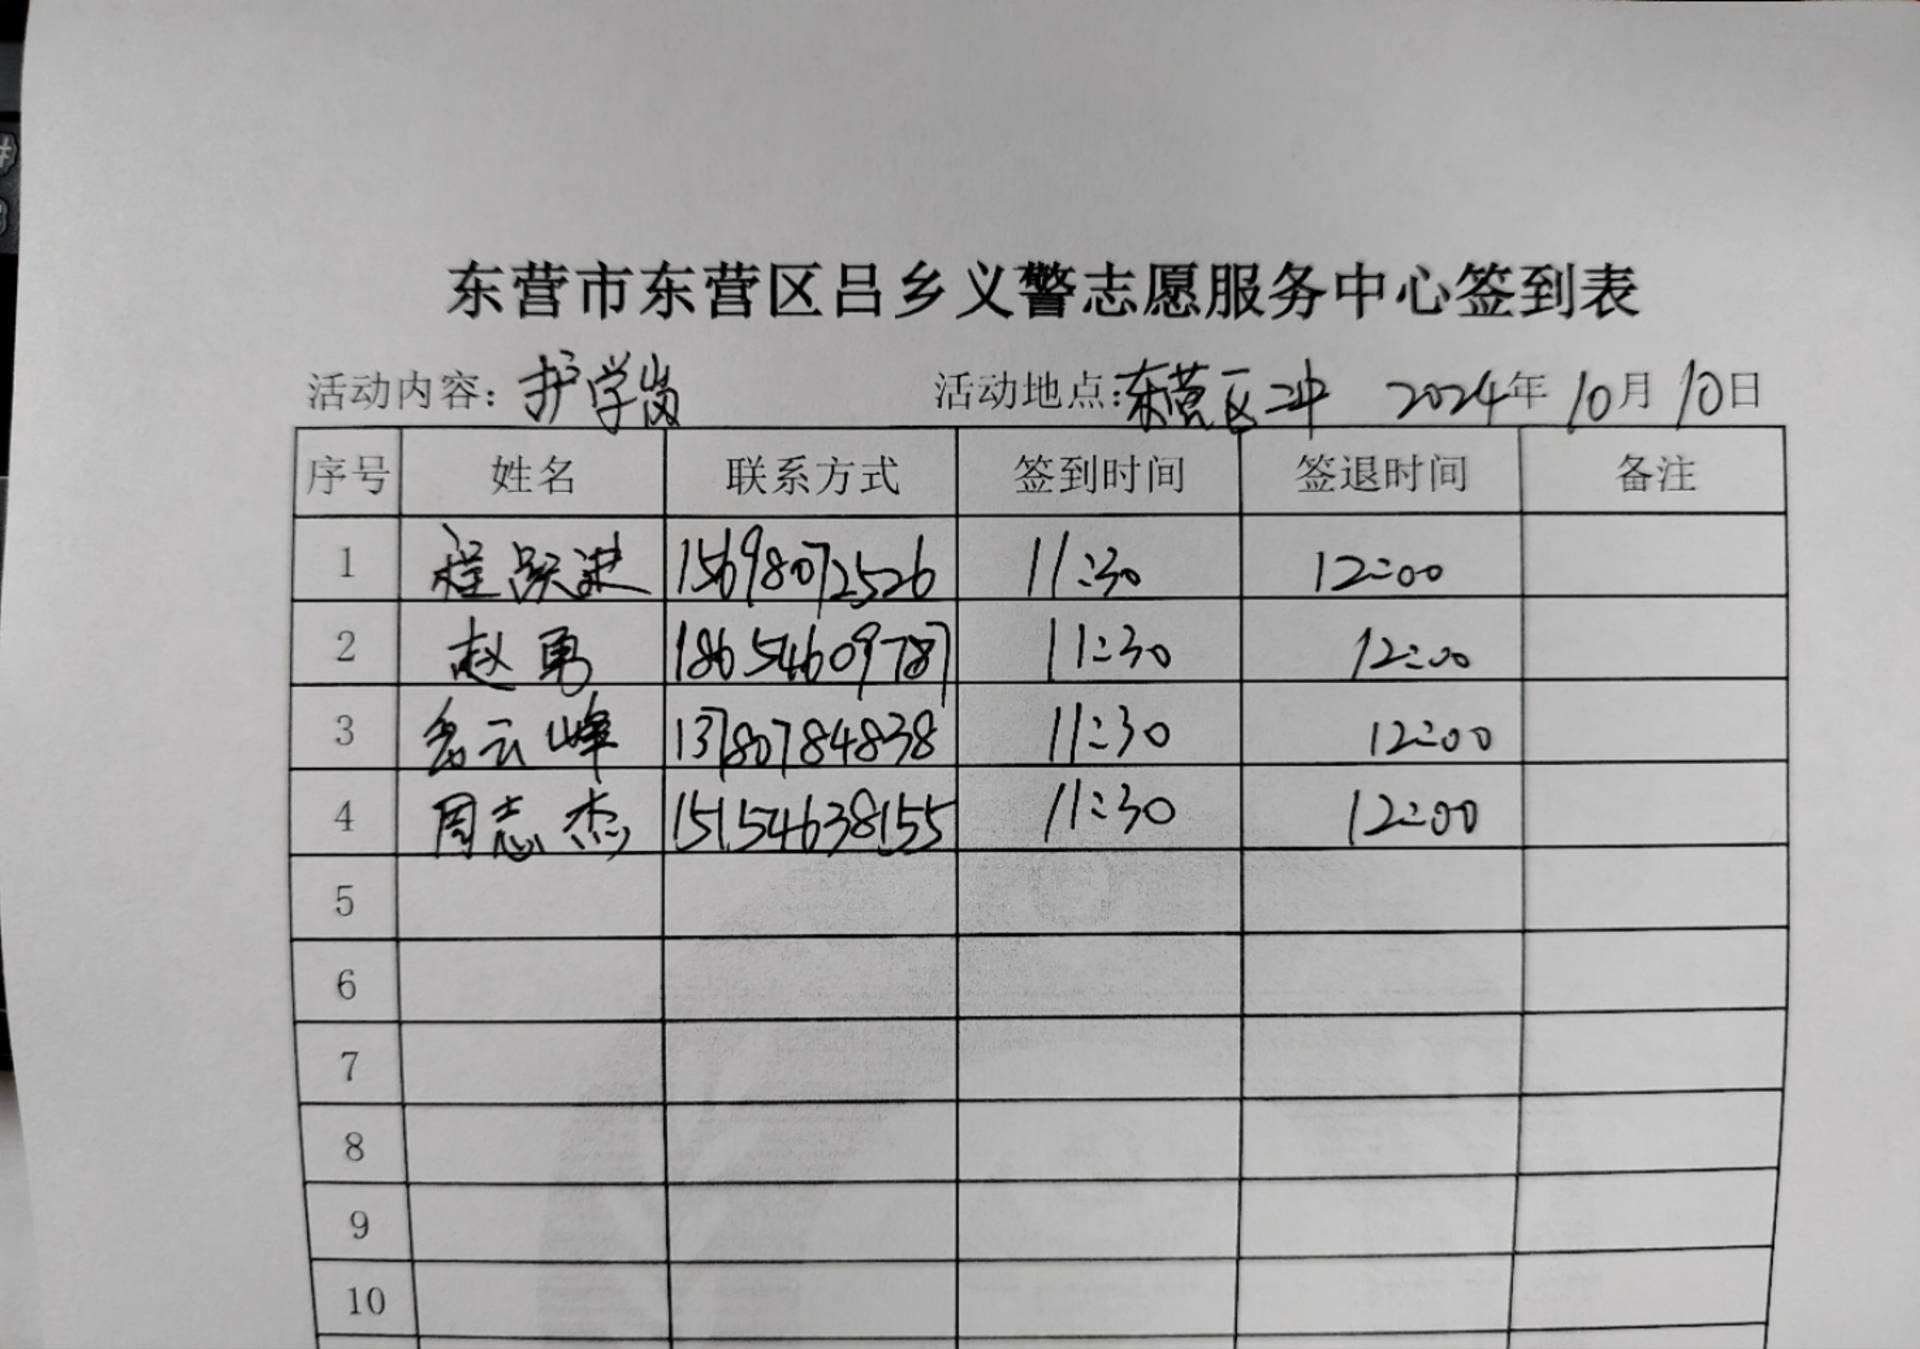 东营市东营区吕乡义警志愿服务中心签到表
活动内容：护学岗 活动地点：东营区二中 2024年10月10日
序号 姓名 联系方式 签到时间 签退时间 备注
1 程跃进 15698072526 11:30 12:00
2 赵勇 18654609787 11:30 12:00
3 云峰 13780784838 11:30 12:00
4 周志杰 15154638155 11:30 12:00
5
6
7
8
9
10